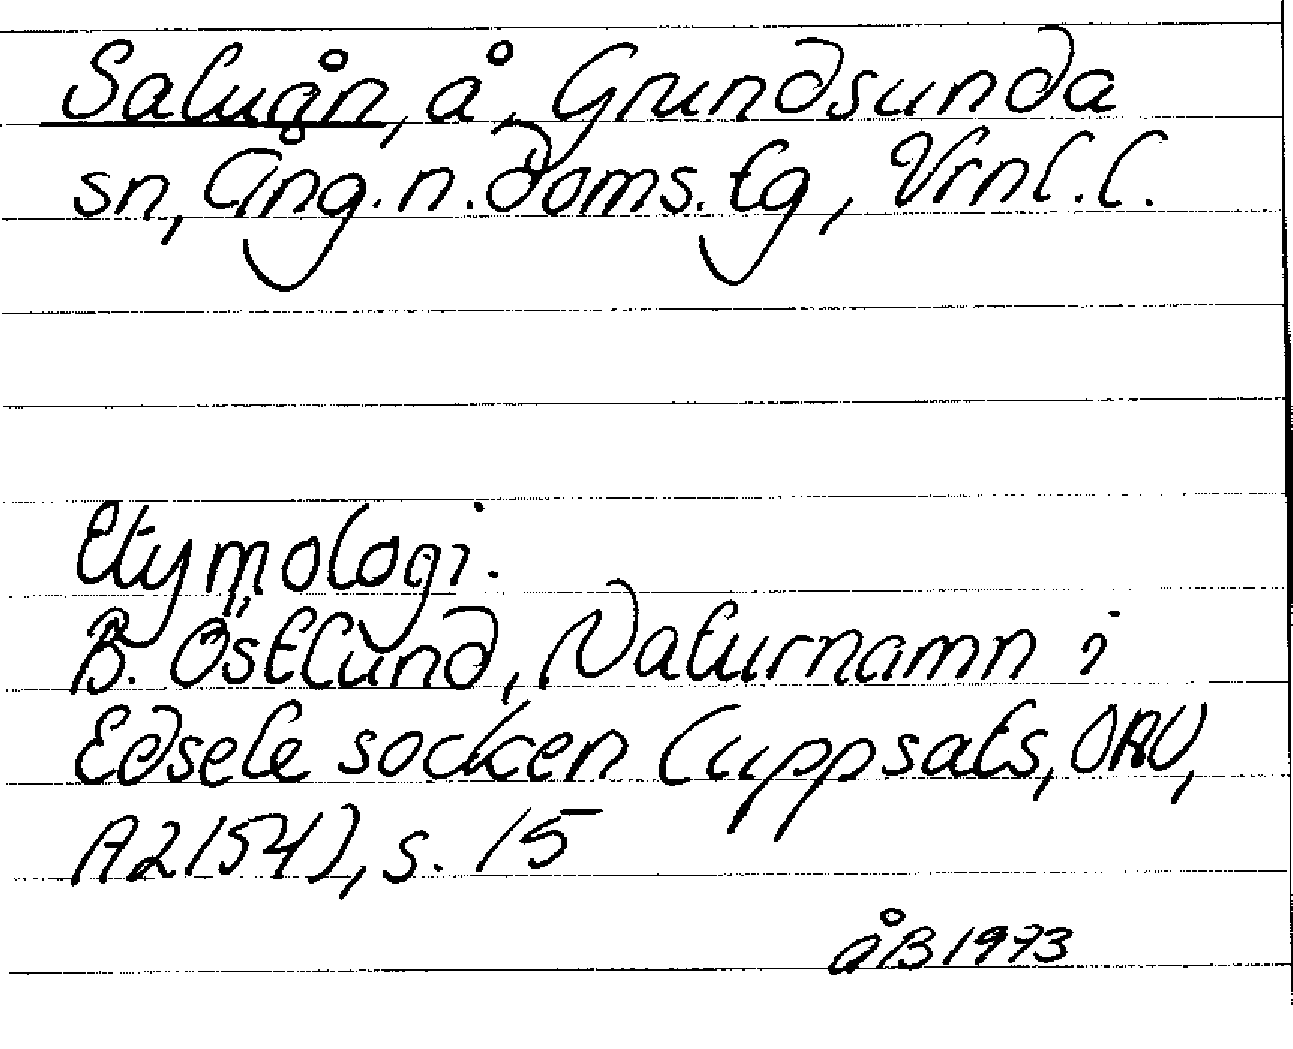 Saluån, å, Grundsunda
sn, Ång.n.doms.tg, Vrnl.l.
Etymologi.
B. Östlund, Naturnamn i
Edsele socken (uppsats, OAU,
A2154), s. 15
ÅB 1973